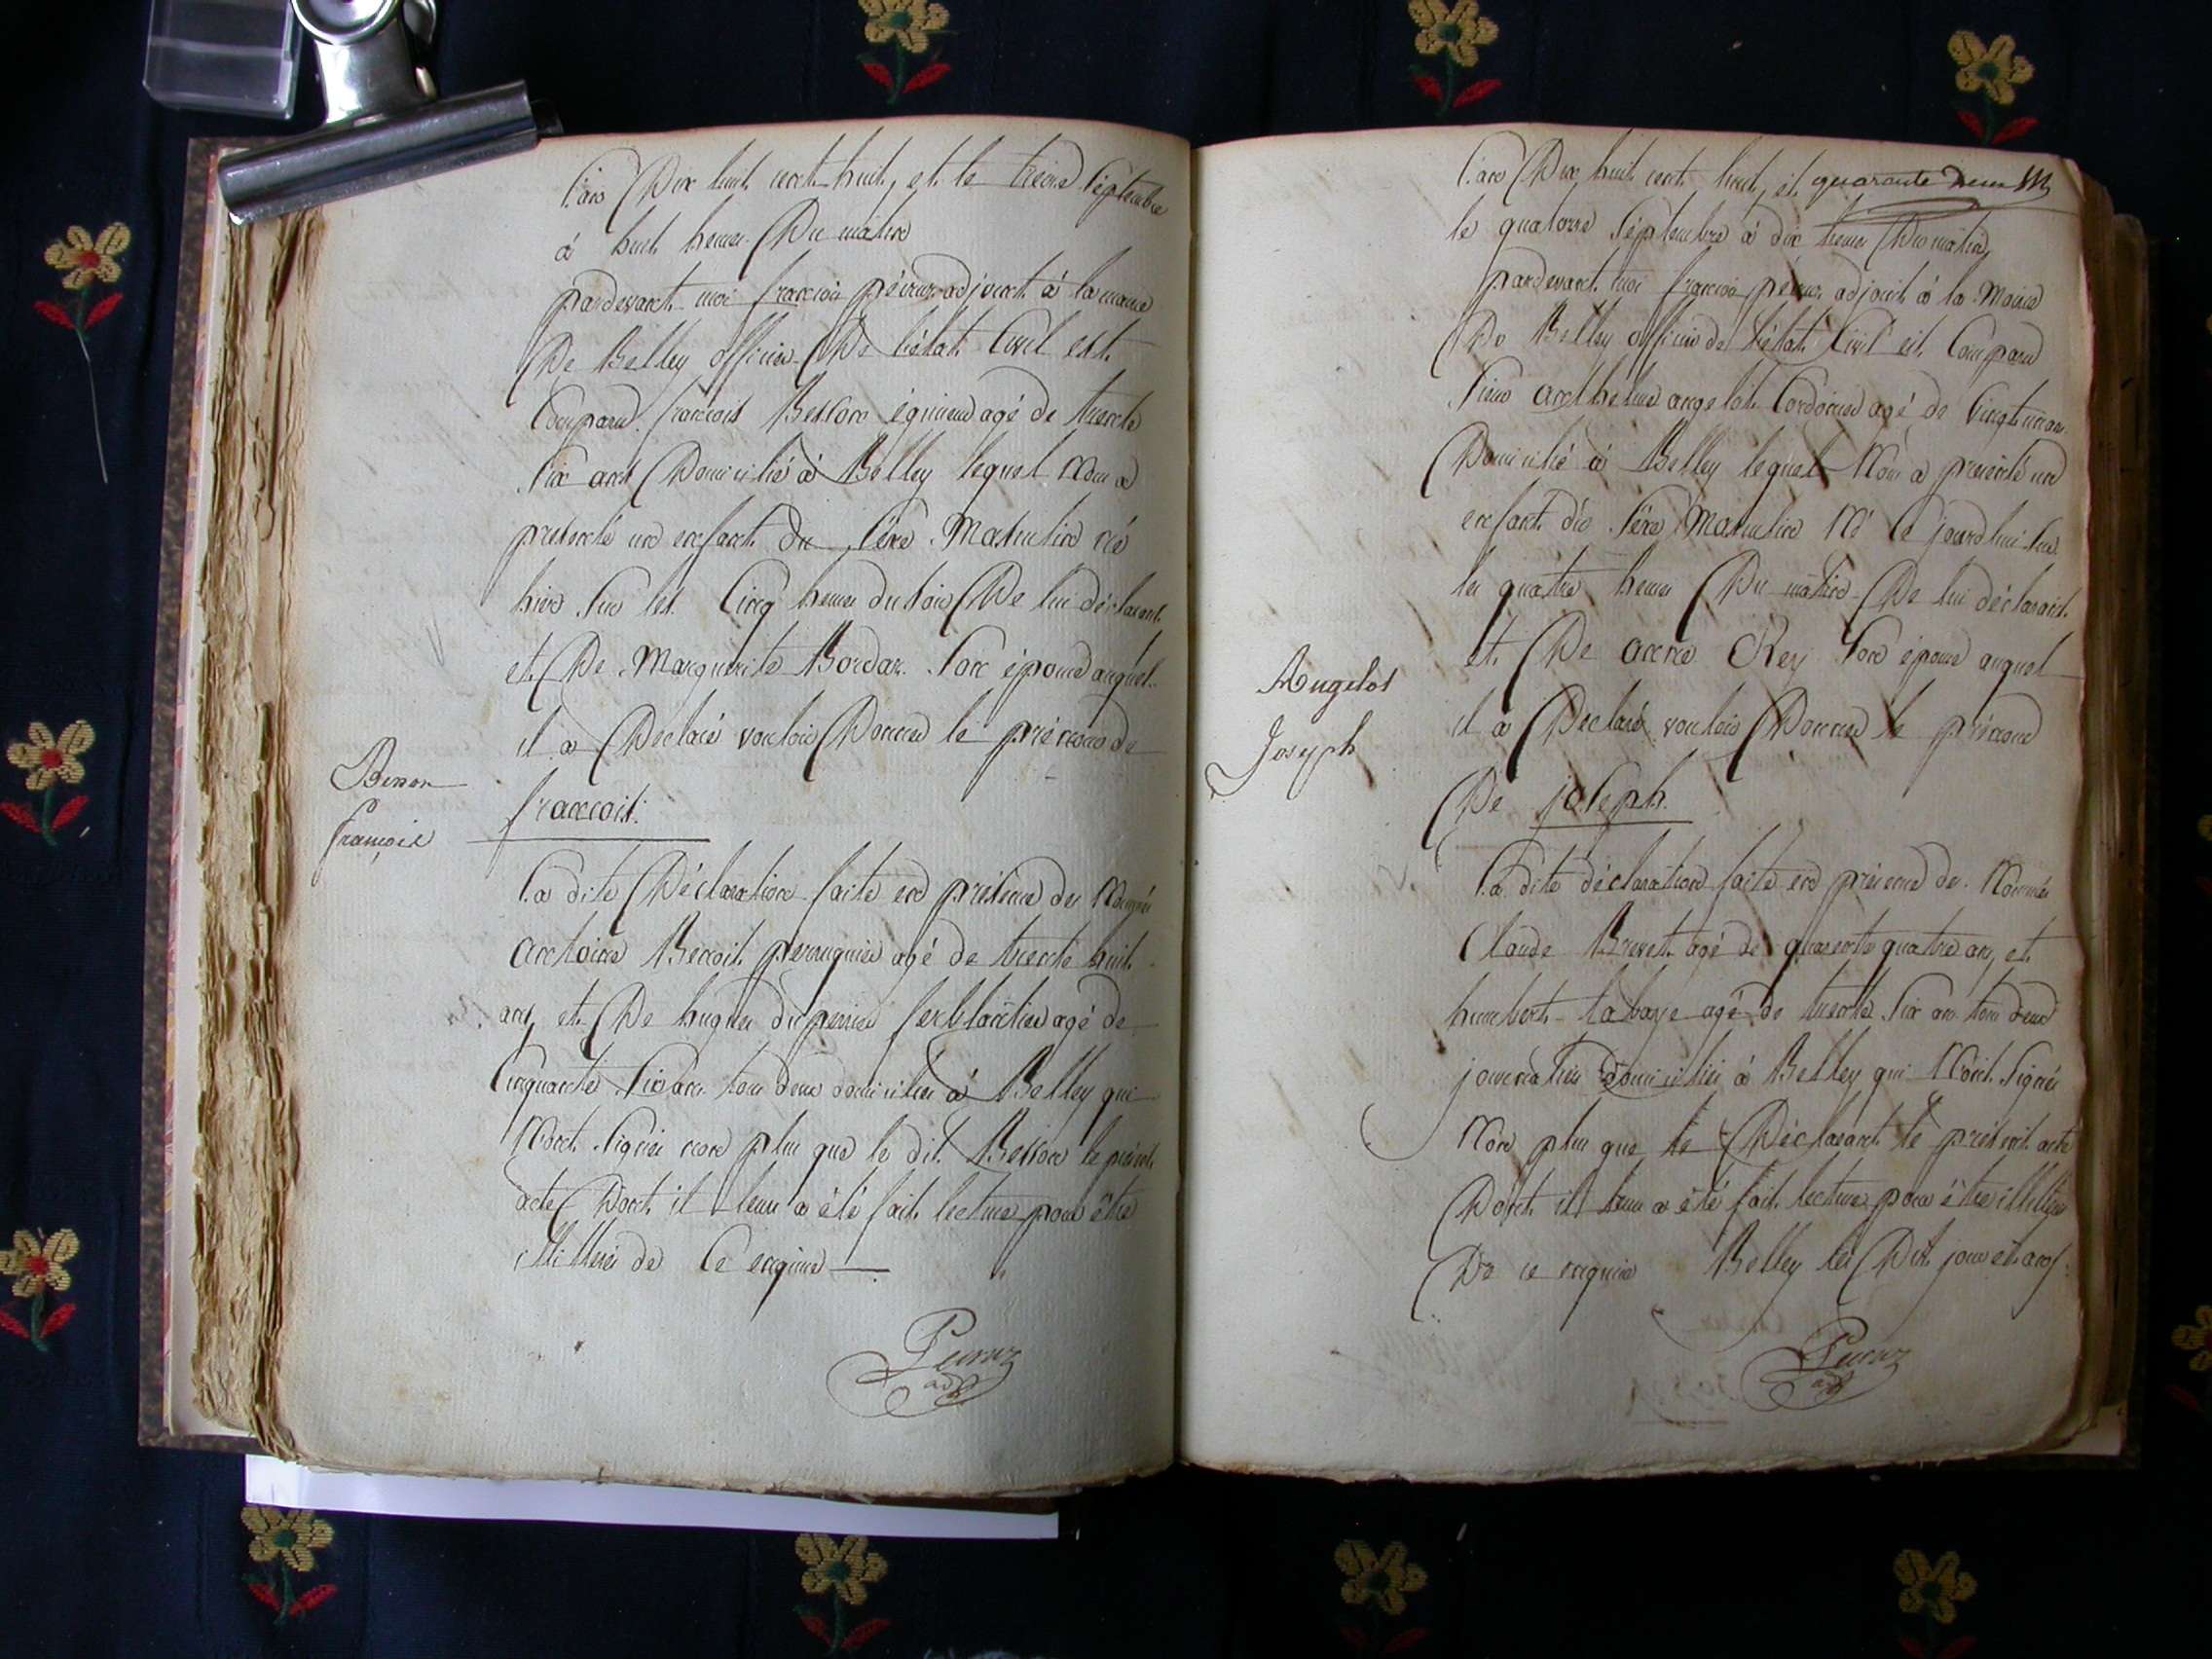 l'an Dix huit cent huit, et le treize Septembre
à huit heures Du matin
pardevant moi francois péuruz adjoint à la mairie
De Belley officier De l'état Civil est
Comparu francois Besson équimeur agé de trente
Six ans Domicilié à Belley lequel Nous a
présenté un enfant du Séxe Masculin né
hier Sur les Cinq heures du Soir De lui déclarant
et De Marguerite Bordaz Son épouse auquel
il a Déclaré vouloir Donner le prénom de
francois.
Besson
françois
La dite Déclaration faite en présence des Nommés
antoine Benoit perruquier agé de trente huit
ans, et De hugues duperrier ferblantier agé de
Cinquante Six ans tous deux domiciliés à Belley qui
N'ont Signés non plus que le dit Besson le présent
acte Dont il leur a été fait lecture pour être
illitérés de Ce enquis
Peuruz
adj
l'an Dix huit cent huit, et quarante deux
le quatorze Septembre à dix heures Du matin
pardevant moi francois péuruz adjoint à la Mairie
De Belley officier de l'état Civil est Comparu
Sieur anthelme angelot Cordonier agé de vingt un ans
Domicilié à Belley lequel Nous a présenté un
enfant du Séxe Masculin Né Ce jourdhui Sur
les quatre heures Du matin De lui déclarant
et De anne Rey Son épouse auquel
il a Déclaré vouloir Donner le prénom
De joseph.
Angelot
Joseph
La dite déclaration faite en présence des Nommés
Claude Brevet agé de quarente quatre ans, et
humbert tabaze agé de trente Six ans tous deux
journaliers Domiciliés à Belley qui N'ont Signés
Non plus que le Déclarant le présent acte
Dont il leur a été fait lecture pour être illitérés
De ce enquis Belley les Dit jour et an
Peuruz
adj